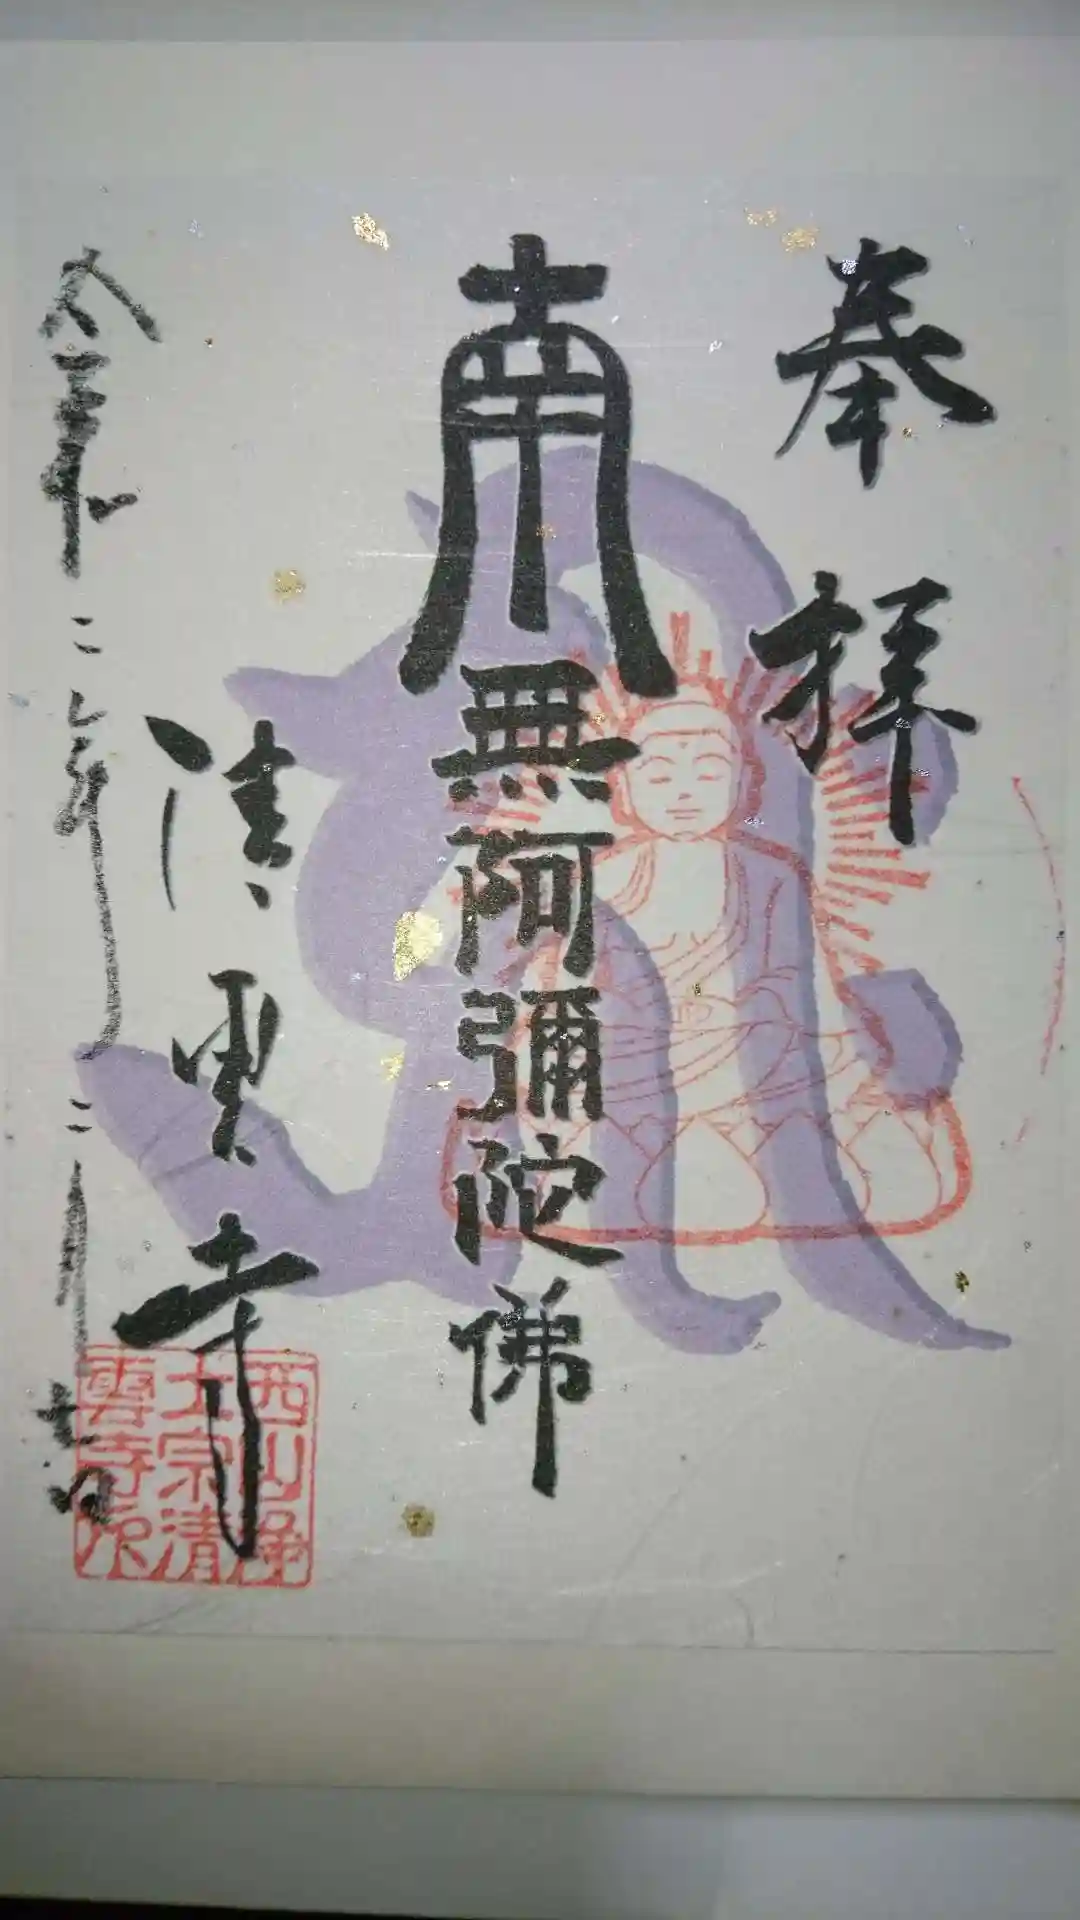 奉拝
南無阿彌陀佛
清雲寺
令和二年二月
西山浄
土宗清
雲寺印